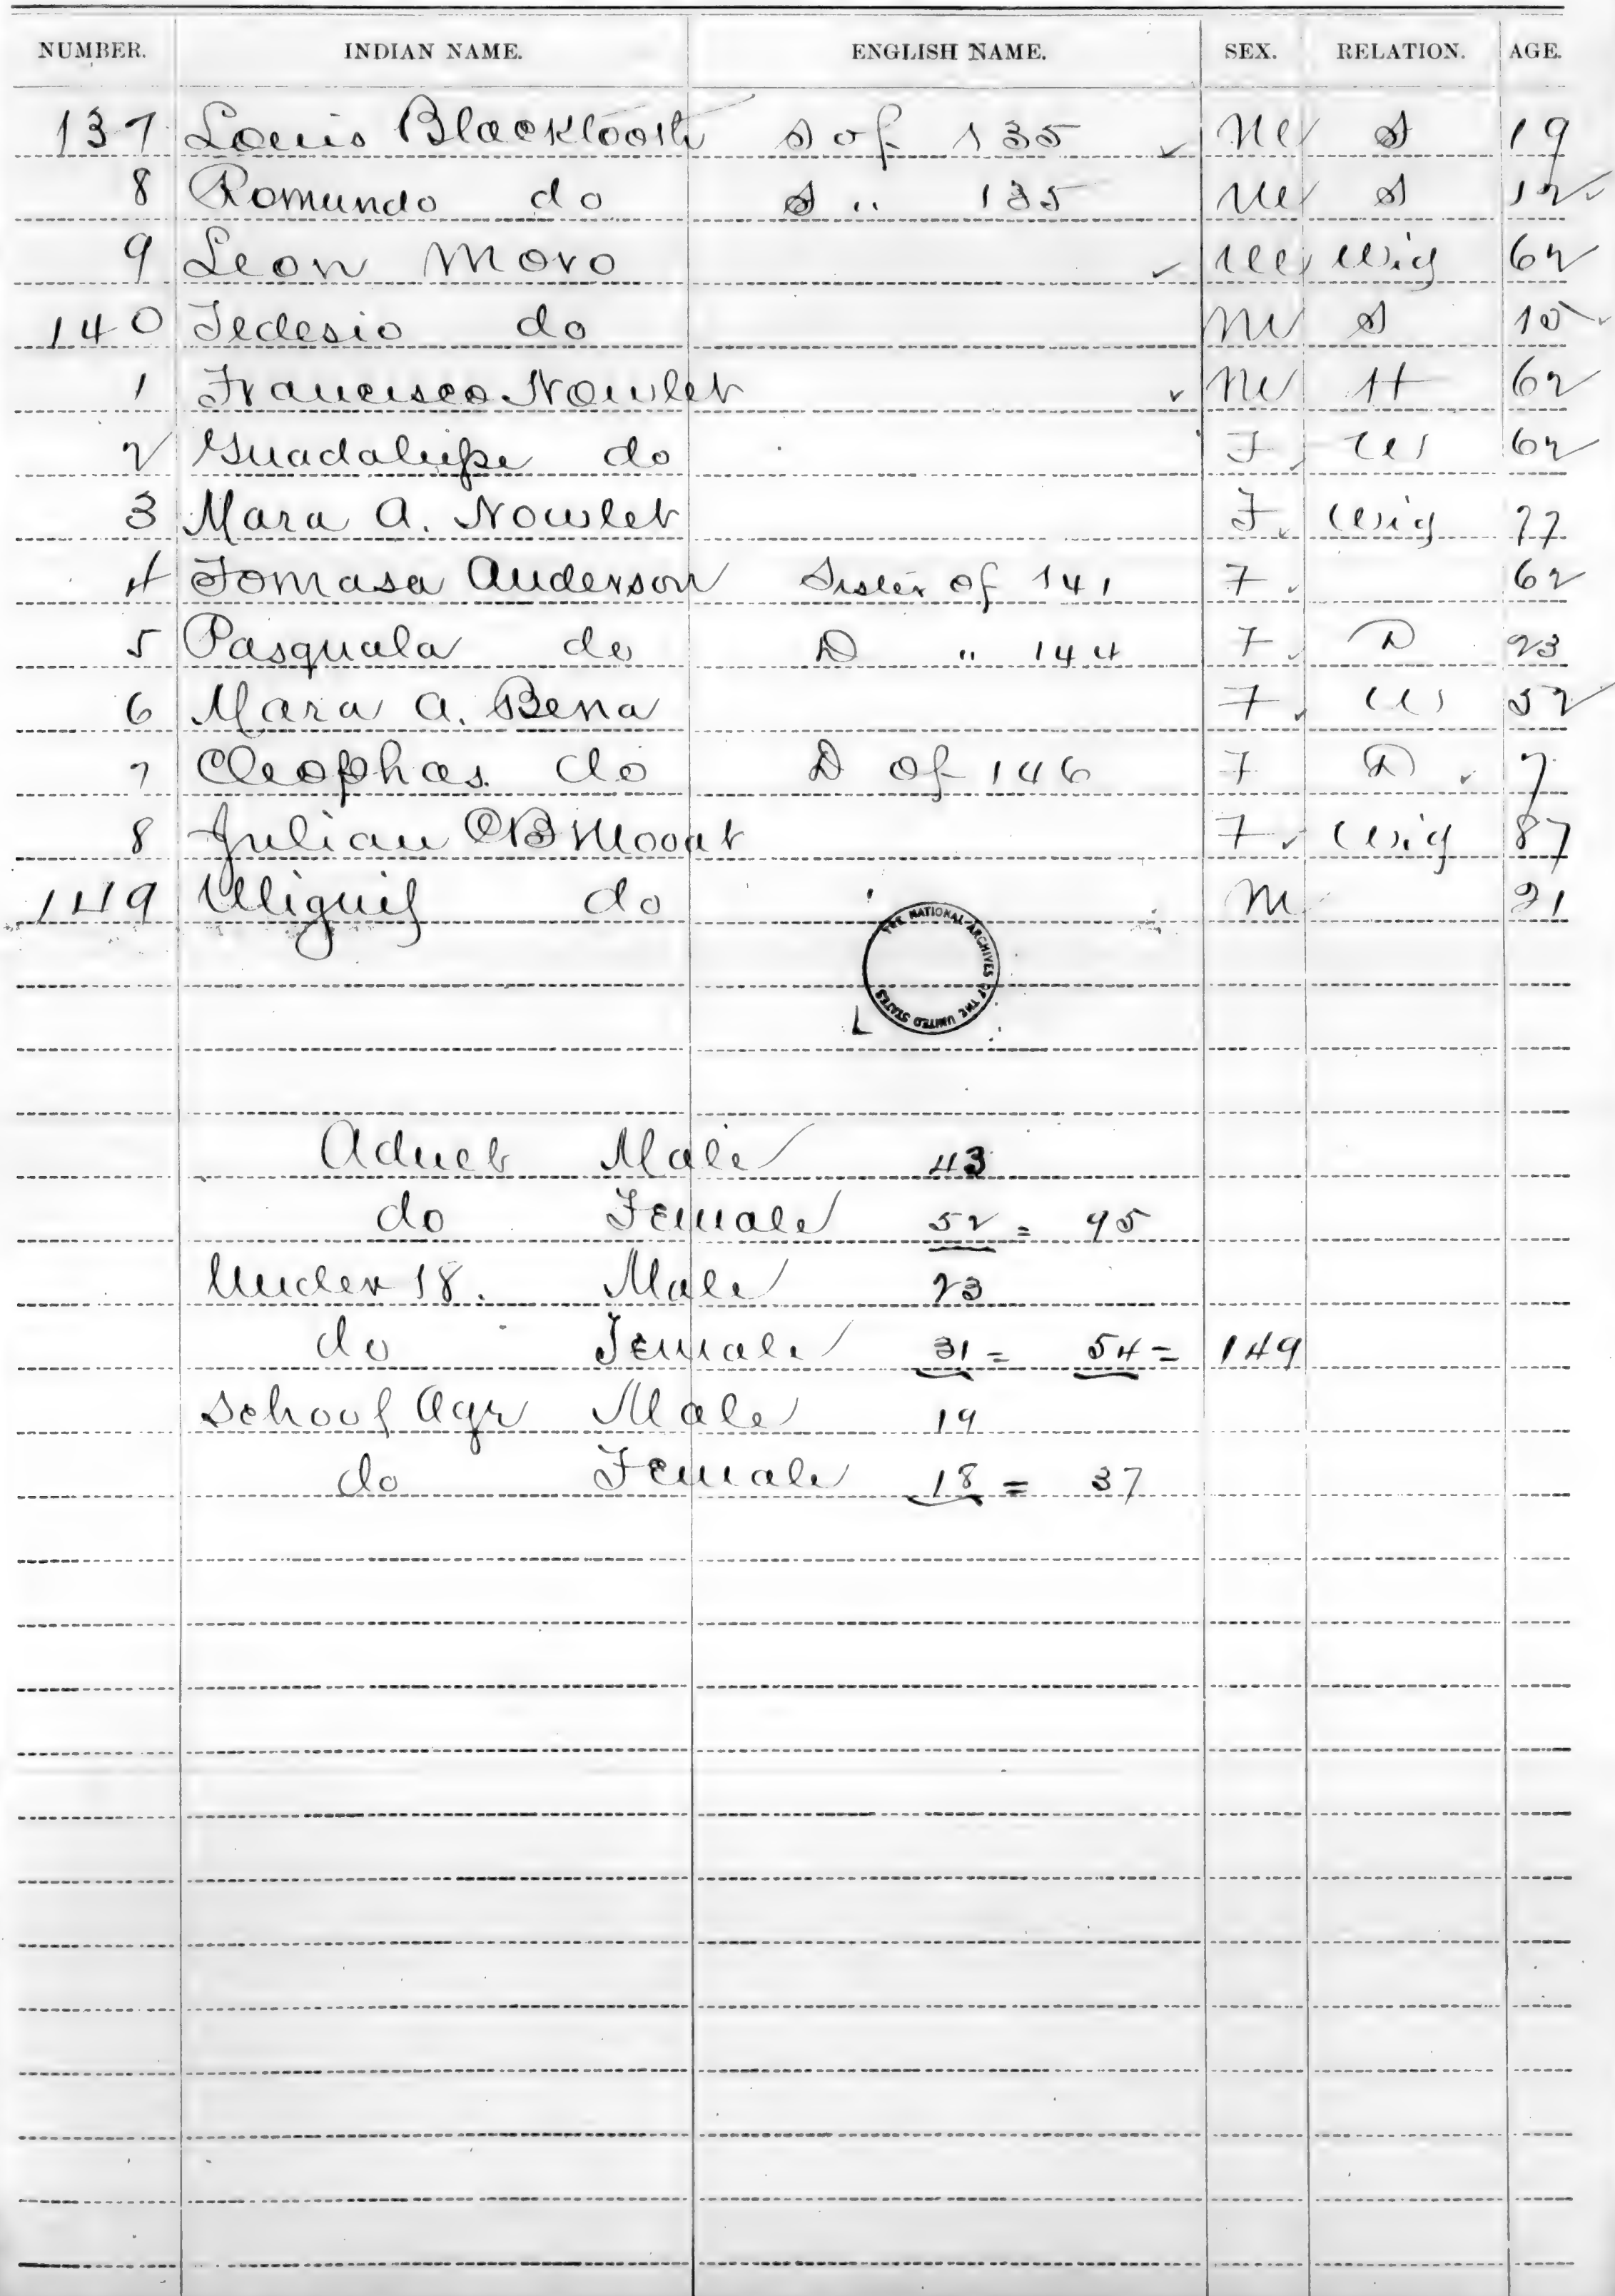 NUMBER. INDIAN NAME. ENGLISH NAME. SEX. RELATION. AGE.
137 Louis Blacktooth S of 135 M S 19
8 Romundo do S " 135 M S 12
9 Leon Moro M Wid 62
140 Tedesio do M S 15
1 Francisco Nowlet M H 62
2 Guadalupe do F W 62
3 Mara A. Nowlet F Wid 77
4 Tomasa Anderson Sister of 141 F 62
5 Pasquala do D " 144 F D 23
6 Mara A. Bena F W 52
7 Cleophas. do D of 146 F D 7
8 Julian F Wid 87
149 Miguil do M 21
THE NATIONAL ARCHIVES OF THE UNITED STATES
Adult Male 43
do Female 52 = 95
Under 18. Male 23
do Female 31 = 54 = 149
School Age Male 19
do Female 18 = 37